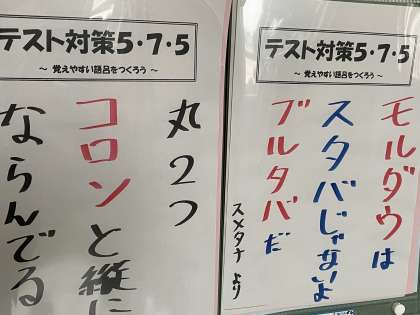 テスト対策5・7・5
～ 覚えやすい語呂をつくろう ～
丸2つ
コロンと縦に
ならんでる
テスト対策5・7・5
～ 覚えやすい語呂をつくろう ～
モルダウは
スタバじゃないよ
ブルタバだ
スメタナより